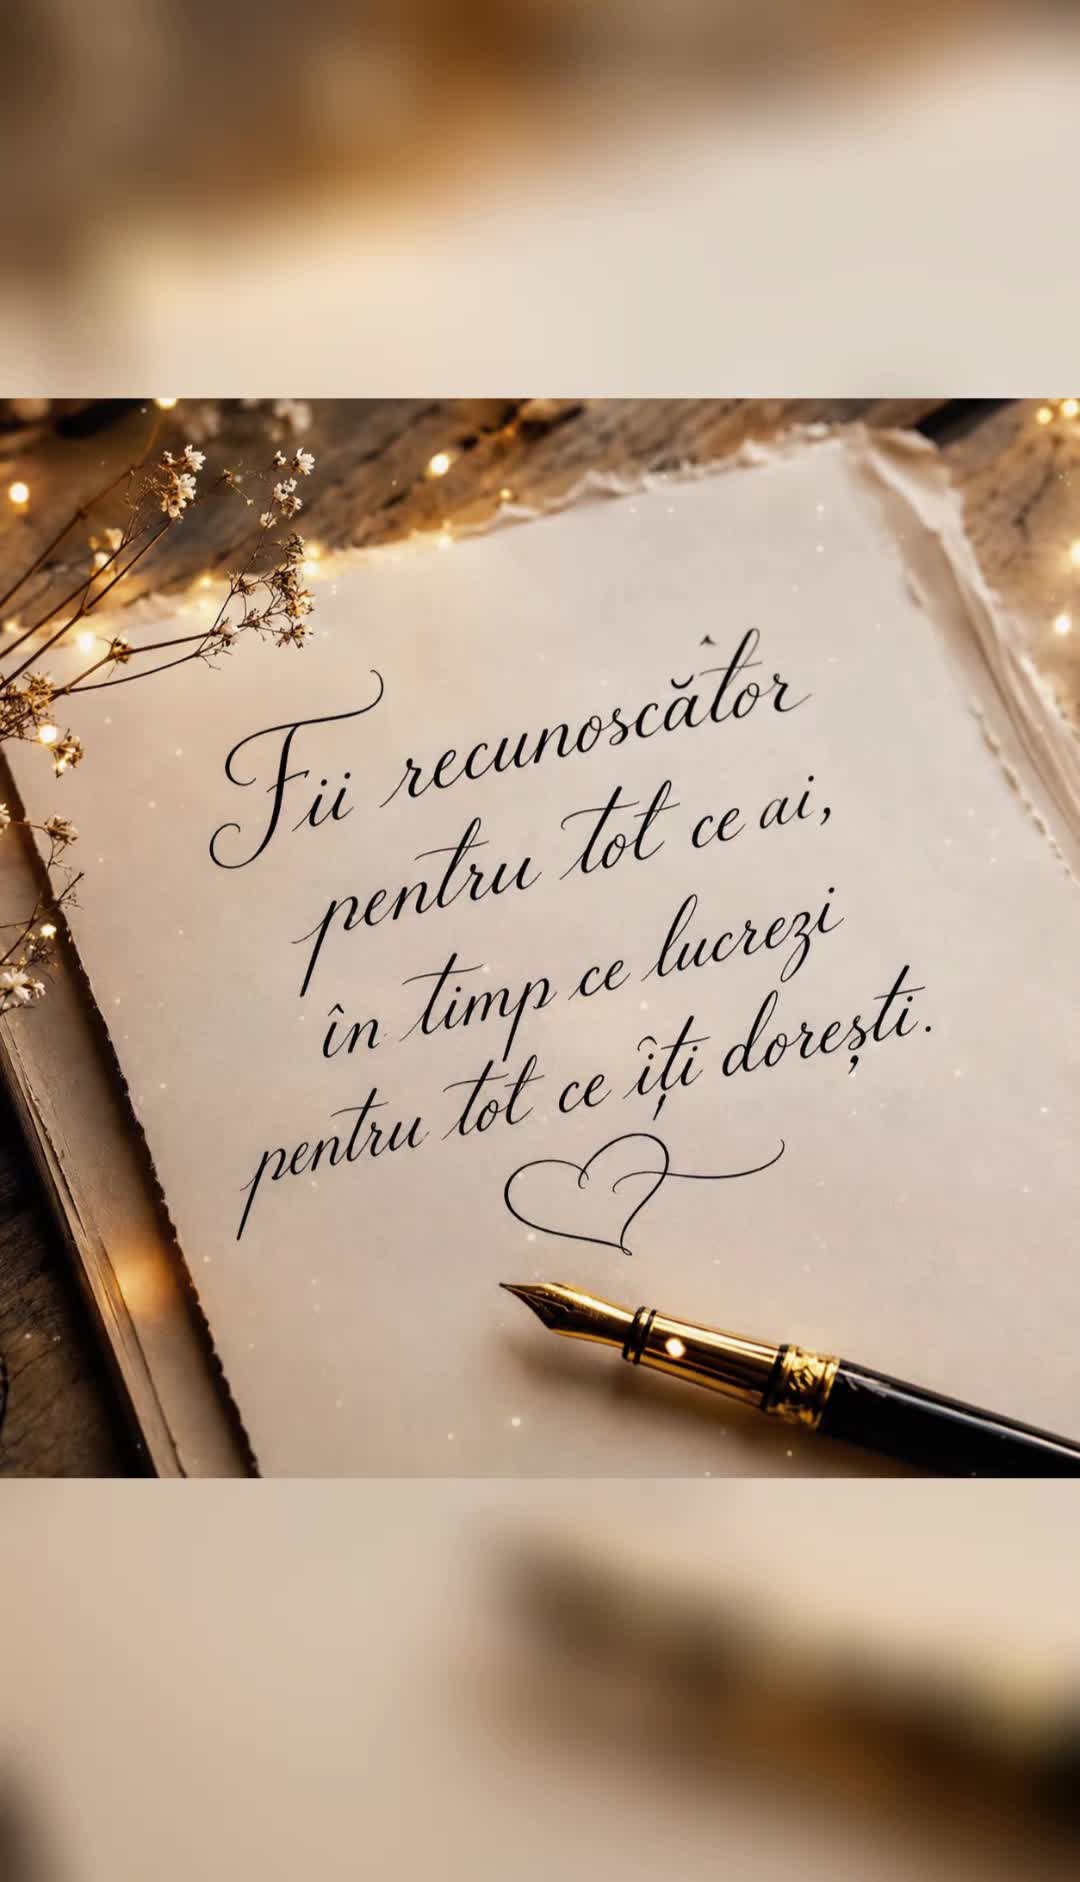 Fii recunoscător
pentru tot ce ai,
în timp ce lucrezi
pentru tot ce îți dorești.